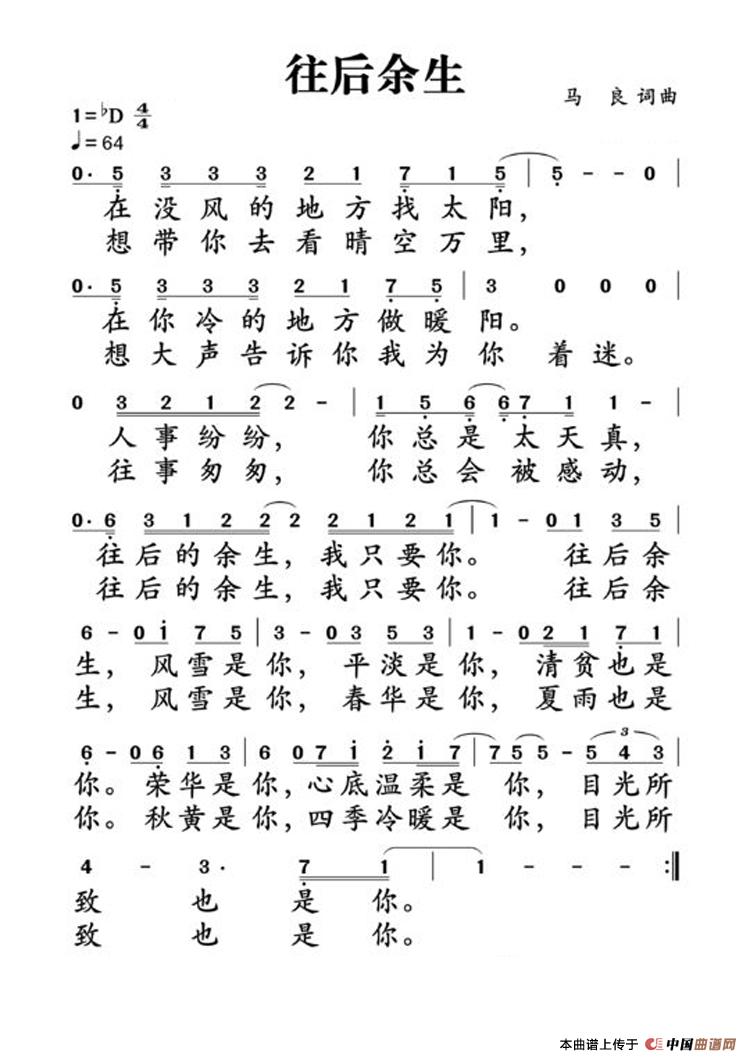 往后余生
马 良 词曲
1=♭D 4/4
♩=64
0· 5 3 3 3 2 1 7 1 5 | 5 - - 0 |
在没风的地方找太阳，
想带你去看晴空万里，
0· 5 3 3 3 2 1 7 5 | 3 0 0 0 |
在你冷的地方做暖阳。
想大声告诉你我为你着迷。
0 3 2 1 2 2 - | 1 5 6 6 7 1 1 - |
人事纷纷， 你总是太天真，
往事匆匆， 你总会被感动，
0· 6 3 1 2 2 2 2 1 2 1 | 1 - 0 1 3 5 |
往后的余生，我只要你。 往后余
往后的余生，我只要你。 往后余
6 - 0 i 7 5 | 3 - 0 3 5 3 | 1 - 0 2 1 7 1 |
生， 风雪是你，平淡是你，清贫也是
生， 风雪是你，春华是你，夏雨也是
6 - 0 6 1 3 | 6 0 7 i 2 i 7 | 7 5 5 - 5 4 3 |
你。荣华是你，心底温柔是 你，目光所
你。秋黄是你，四季冷暖是 你，目光所
4 - 3· 7 1 | 1 - - - :‖
致 也 是 你。
致 也 是 你。
本曲谱上传于 中国曲谱网